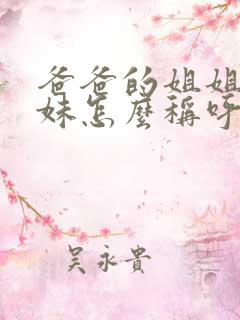 爸爸的姐姐
妹怎麼稱呼
吳永貴